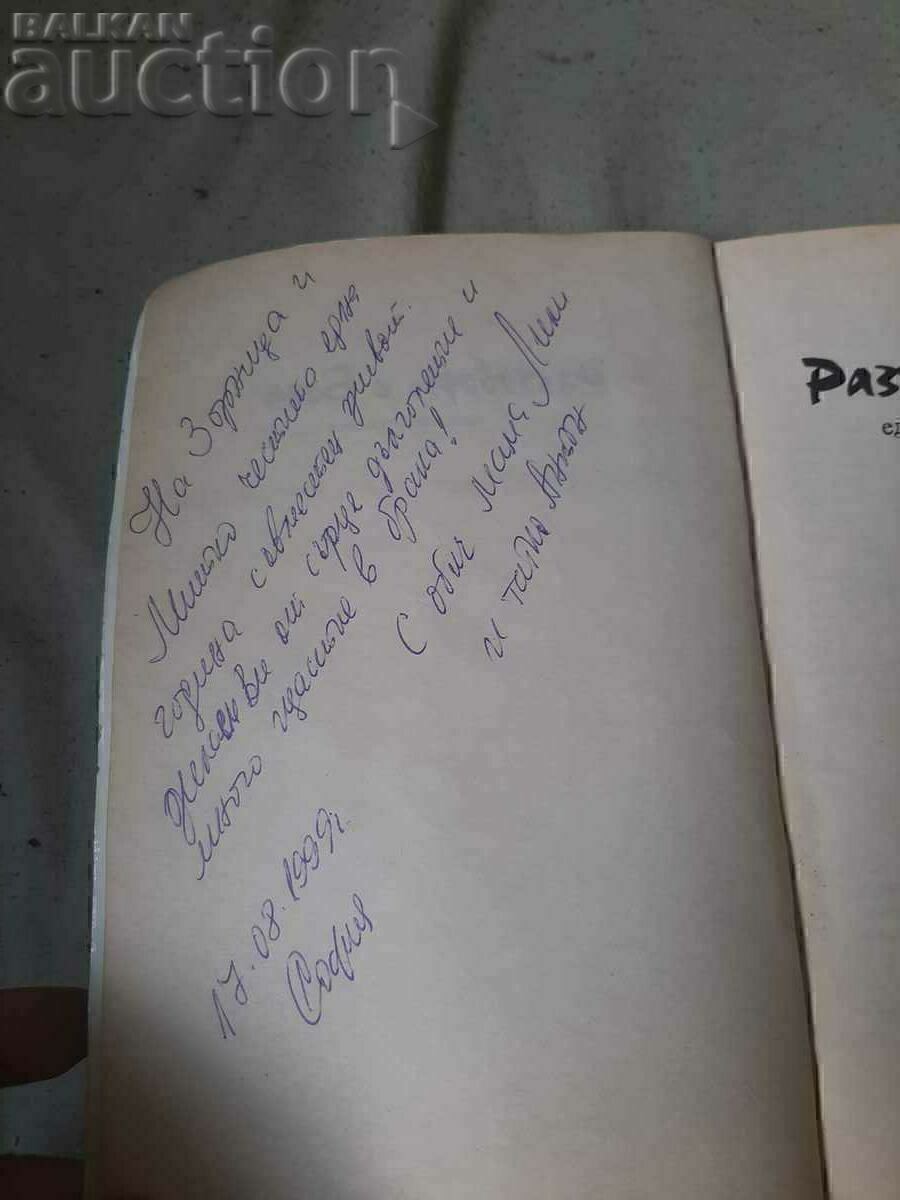 BALKAN
auction
На Зорница и
Митко честито една
година съвместен живот.
Желаем Ви от сърце дълголетие и
много щастие в брака!
С обич мама Лили
и татко
17.08.1999г.
София
Раз
ед